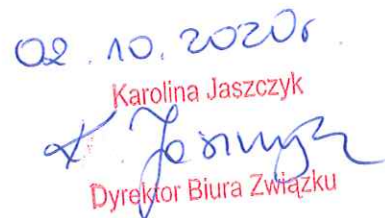 02.10.2020r.
Karolina Jaszczyk
K. Jaszczyk
Dyrektor Biura Związku